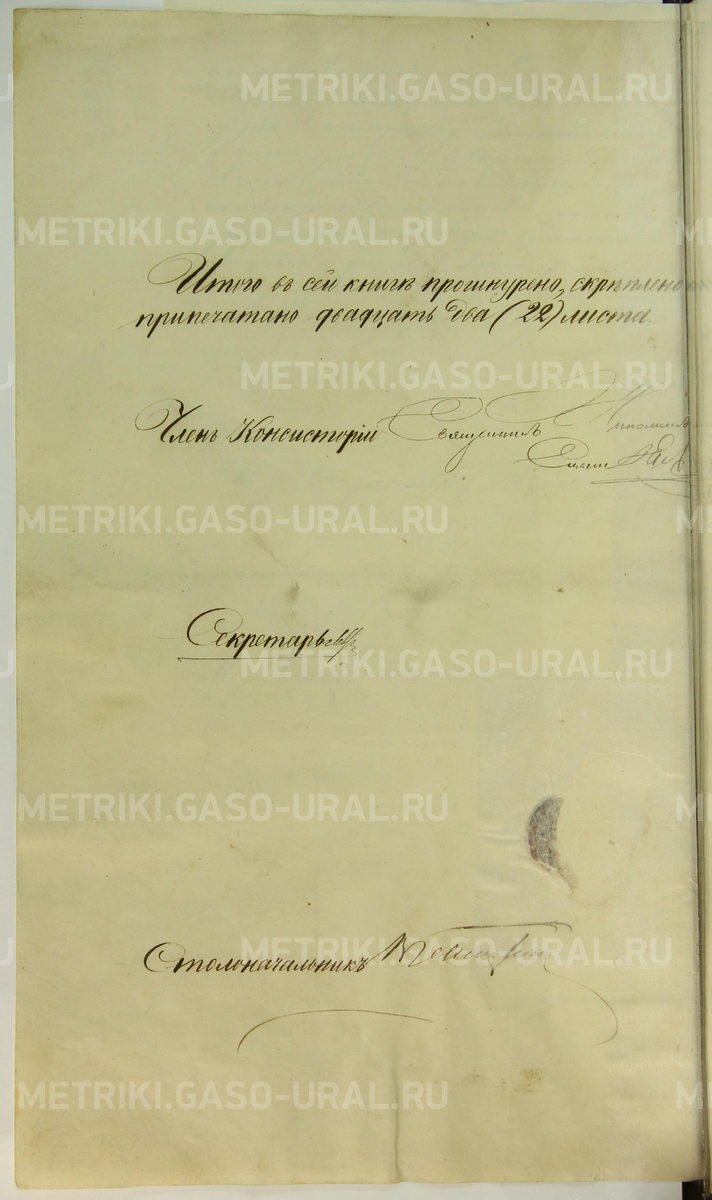 Итого въ сей книгѣ прошнурено, скрѣплено
припечатано двадцать два (22) листа
Членъ Консисторіи Священникъ
Секретарь
Столоначальникъ
METRIKI.GASO-URAL.RU
METRIKI.GASO-URAL.RU
METRIKI.GASO-URAL.RU
METRIKI.GASO-URAL.RU
METRIKI.GASO-URAL.RU
METRIKI.GASO-URAL.RU
METRIKI.GASO-URAL.RU
METRIKI.GASO-URAL.RU